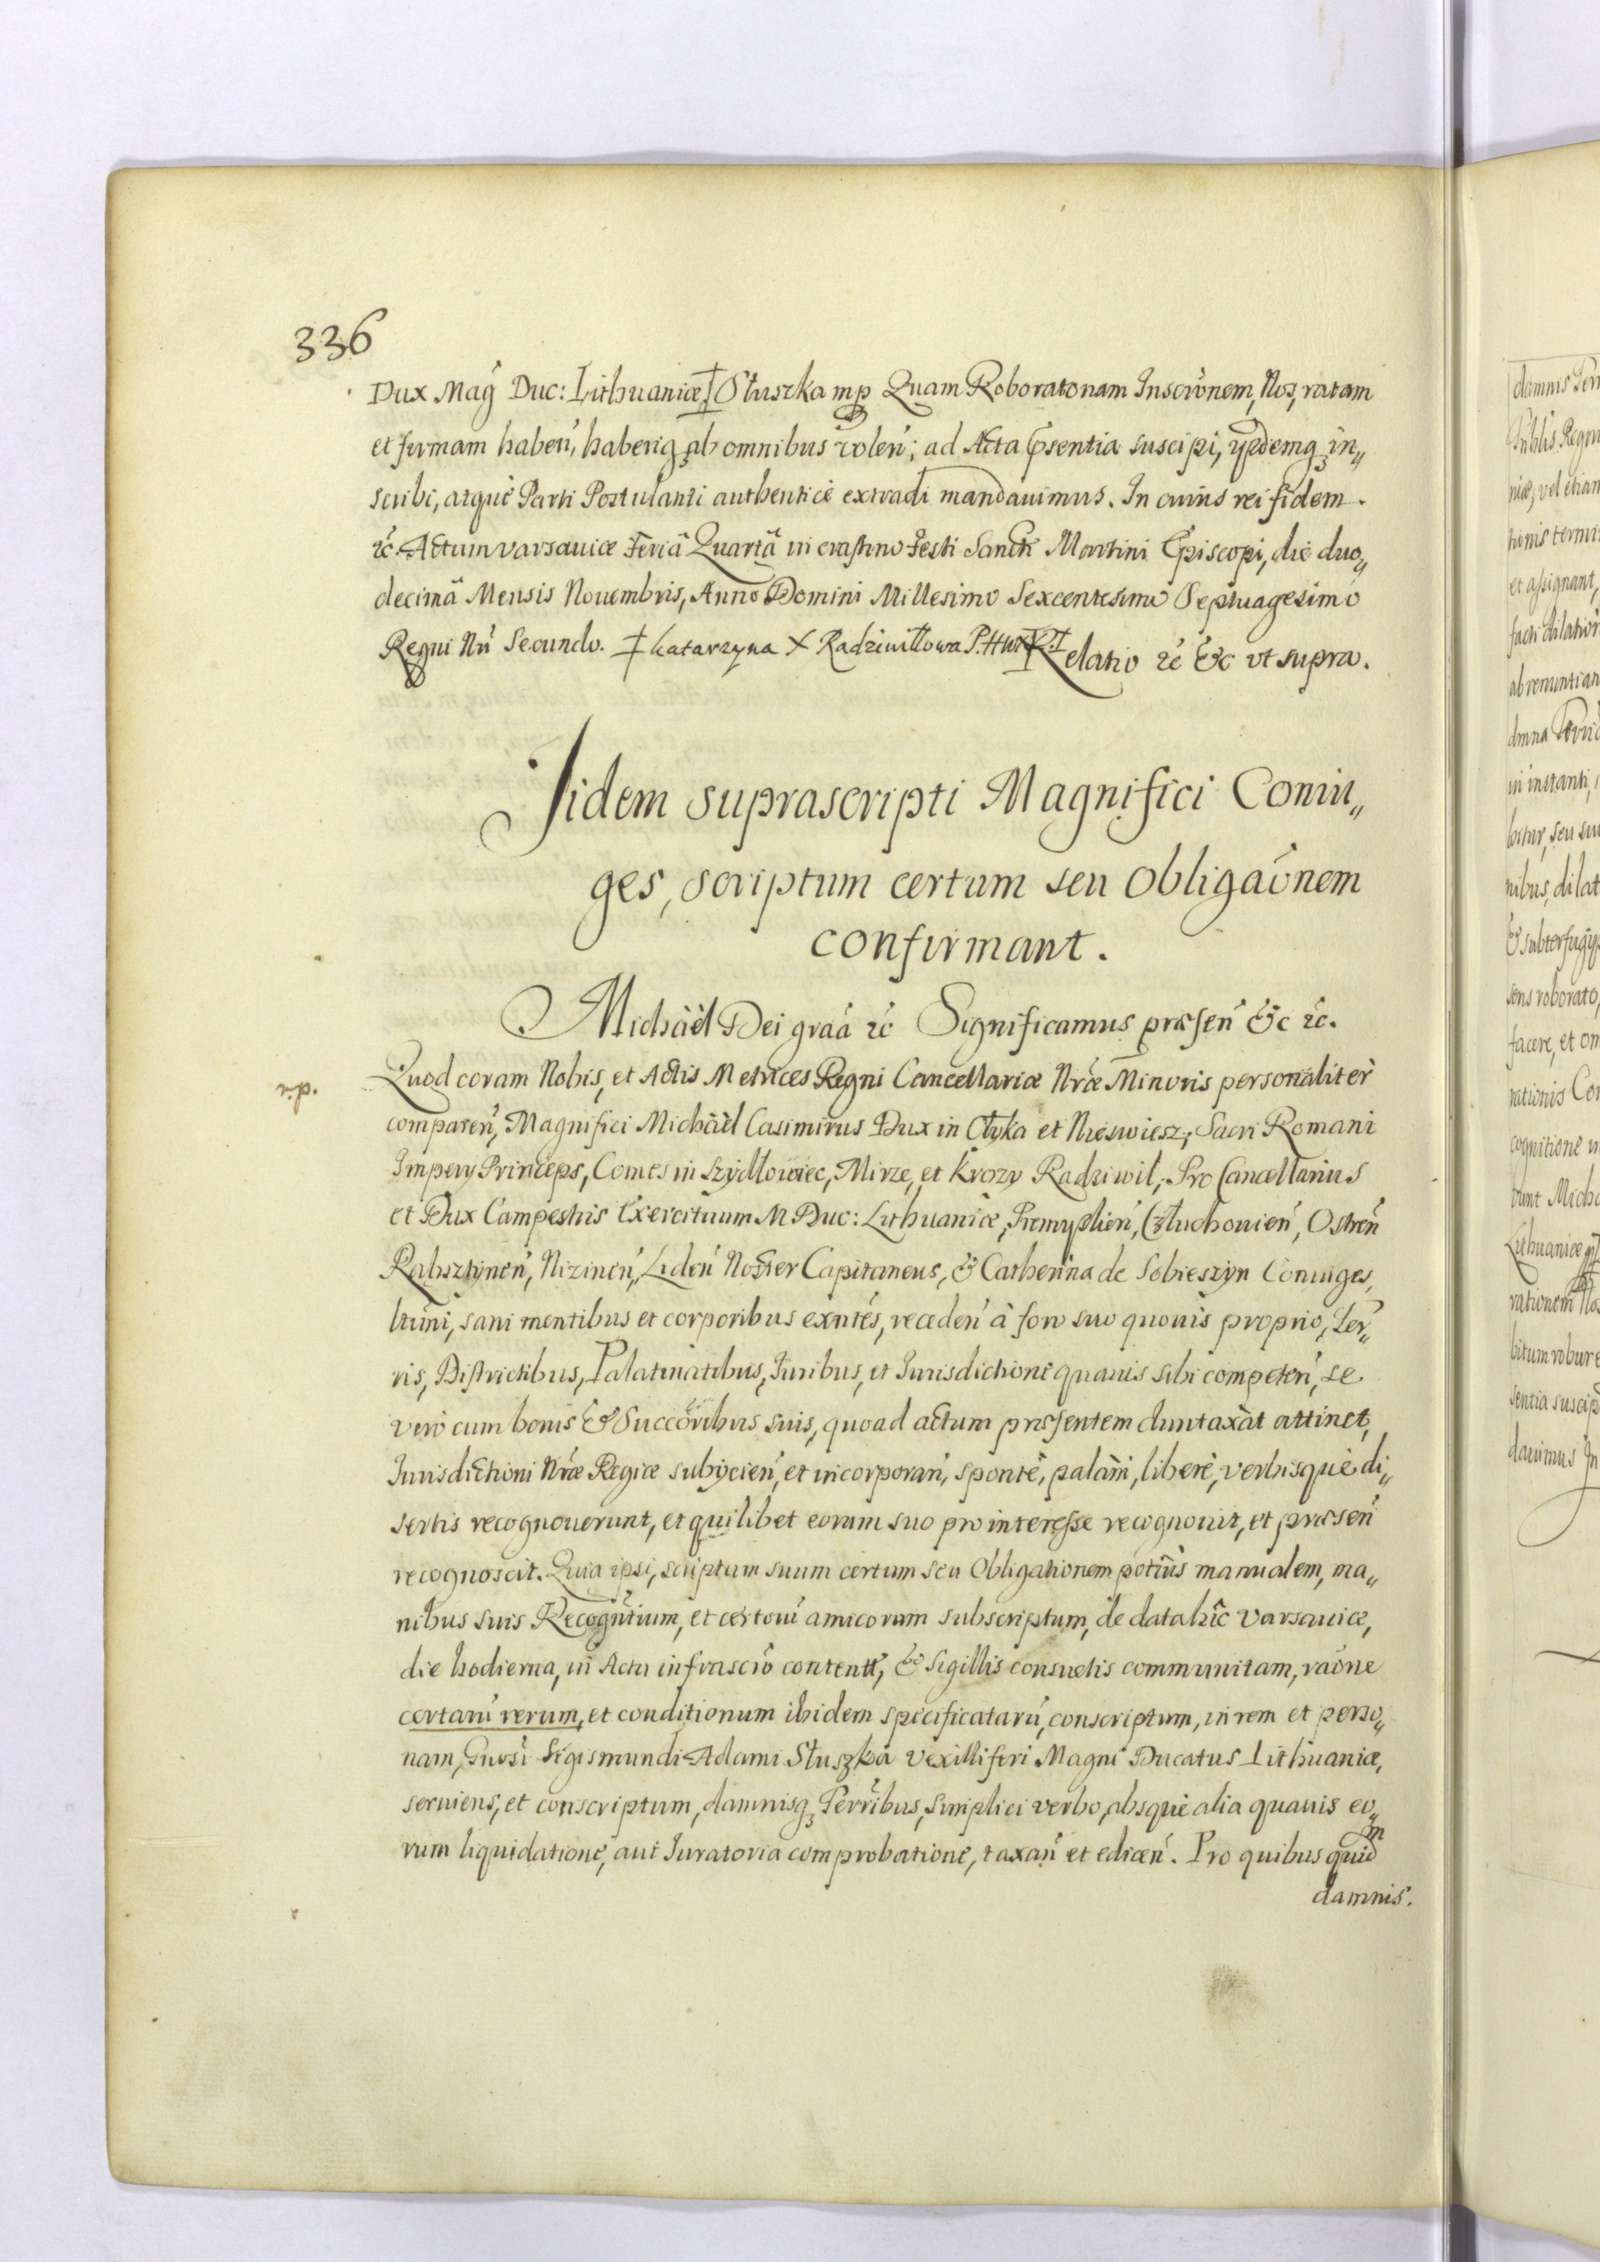 336
Dux Mag̃ Duc: Lithuaniæ Słuszka mp Quam Roboratonam Inscrõnem, Nos, ratam
et firmam haben̄, haberiq₃ ab omnibus volen̄; ad Acta p̄sentia suscipi, ysdemq₃ in„
scribi, atquè Parti Postulanti authenticè extradi mandauimus. In cuius rei fidem.
&c̃. Actum varsauiæ Feriâ Quartâ in crastino Festi Sancti Martini Episcopi, die duo„
decimâ Mensis Nouembris, Anno Domini Millesimo Sexcentesimo Septuagesimo
Regni Nr̃i Secundo. Katarzyna X Radziwiłłowa Relatio &c̃ &c vt supra.
Iidem suprascripti Magnifici Coniu„
ges, scriptum certum seu Obligaõnem
confirmant.
Michäel Dei graã &c Significamus præsen̄ &c &c.
r.p.
Quod coram Nobis, et Actis Metrices Regni Cancellariæ Nrǽ Minoris personalitèr
comparen̄, Magnifici Michäel Casimirus Dux in Ołyka et Nieswiesz, Sacri Romani
Impery Princeps, Comes in Szydłowiec, Mirze, et Krozy Radziwil, Pro Cancellarius
et Dux Campestris Exercituum M Duc: Lithuaniæ, Præmyslien̄, Człuchouien̄, Ostren̄
Rabsztynen̄, Nizinen̄, Liden̄ Noster Capitaneus, & Catherina de Sobieszyn Coniuges,
ltimi, sani mentibus et corporibus exñtes, receden̄ à foro suo quouis proprio, Ter„
ris, Districtibus, Palatinatibus, Iuribus, et Iurisdictione quauis sibi competen̄, se
verò cum bonis & Succõribus suis, quoad actum præsentem duntaxàt attinet,
Iurisdictioni Nrǽ Regiæ subijcien̄, et incorporan̄, spontè, palàm, liberè, verbisquè di„
sertis recognouerunt, et quilibet eorum suo pro interesse recognouit, et præsen̄
recognoscit. Quia ipsi, scriptum suum certum seu Obligationem potiùs manualem, ma„
nibus suis Recogñtium, et certorũ amicorum subscriptum, de data hîc Varsauiæ,
die hodierna, in Actu infrascrõ content, & Sigillis consuetis communitam, raõne
certarũ rerum, et conditionum ibidem specificatarũ, conscriptum, in rem et perso„
nam, Gnosi Sigismundi Adami Słuszka Vexilliferi Magni Ducatus Lithuaniæ,
seruiens, et conscriptum, damnisq₃ Terribus, simplici verbo, absquè alia quauis eo„
rum liquidatione, aut Iuratoria comprobatione, taxan̄ et edicen̄. Pro quibus quidm
damnis.